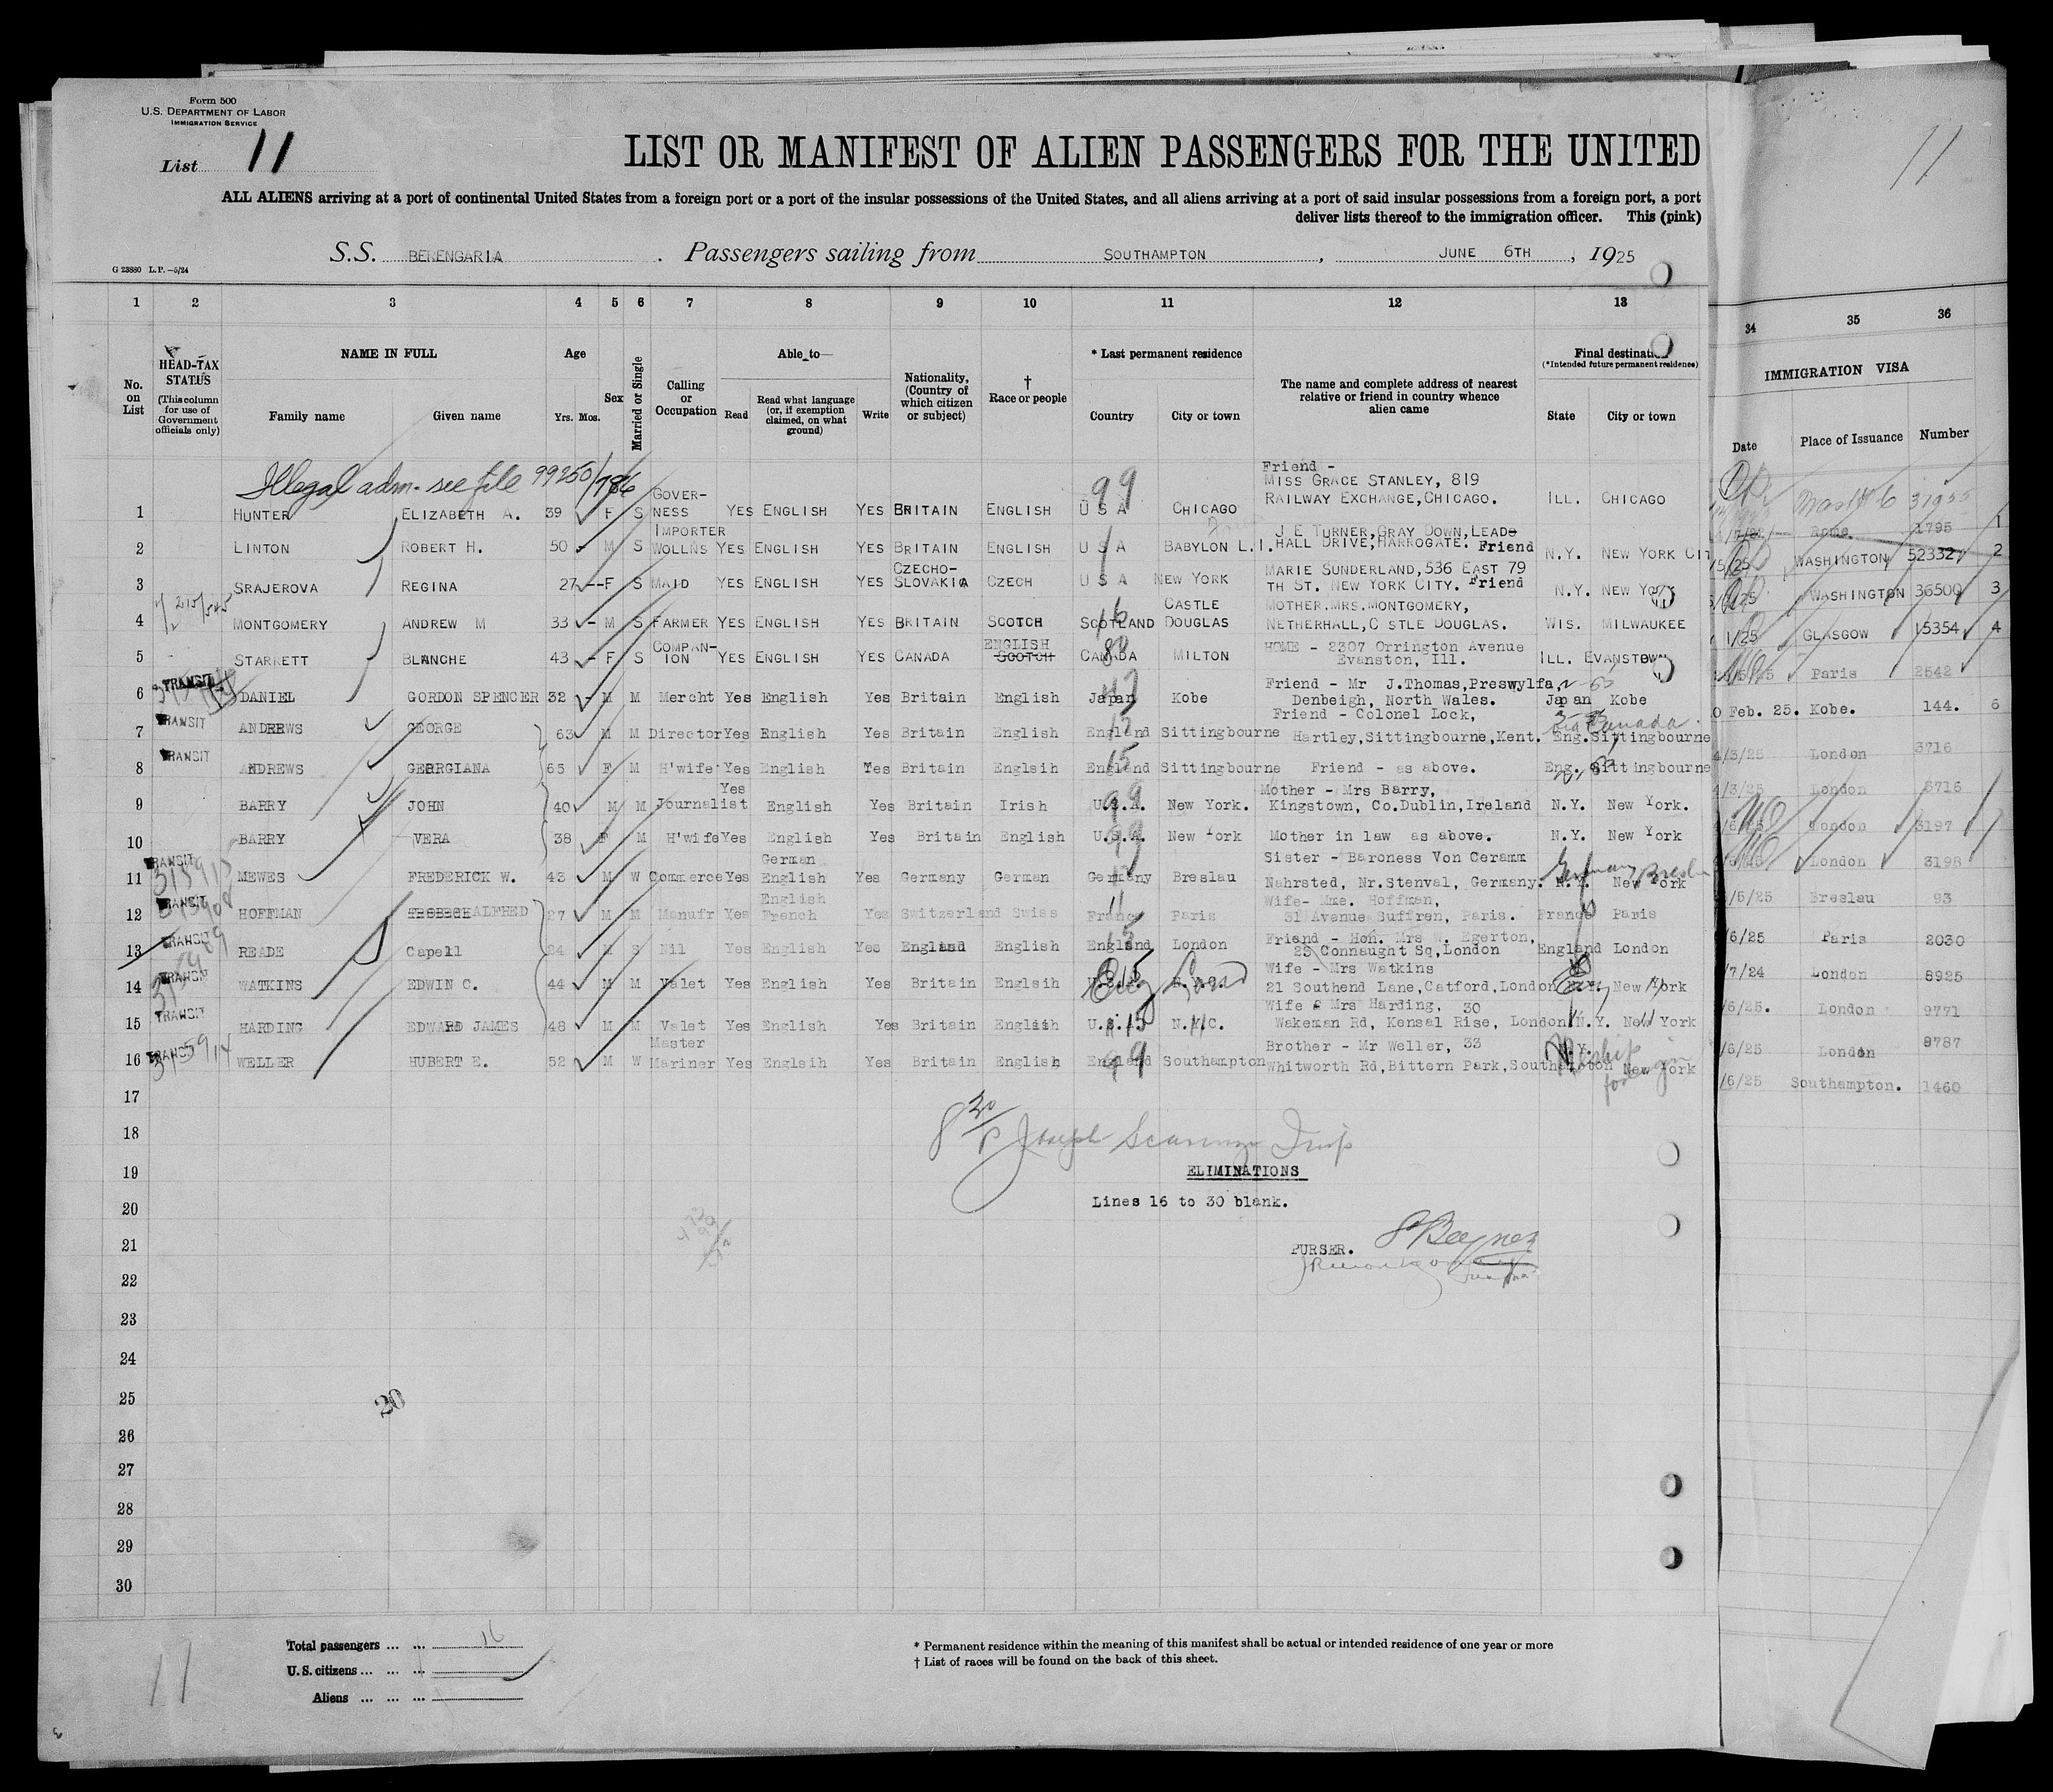 Form 500
U.S. DEPARTMENT OF LABOR
IMMIGRATION SERVICE
List 11
LIST OR MANIFEST OF ALIEN PASSENGERS FOR THE UNITED
11
ALL ALIENS arriving at a port of continental United States from a foreign port or a port of the insular possessions of the United States, and all aliens arriving at a port of said insular possessions from a foreign port, a port
deliver lists thereof to the immigration officer. This (pink)
S.S. BERENGARIA . Passengers sailing from SOUTHAMPTON , JUNE 6TH , 1925
G 23880 L.P.—5/24
1 2 3 4 5 6 7 8 9 10 11 12 13 34 35 36
No. on List
HEAD-TAX STATUS
(This column for use of Government officials only)
NAME IN FULL
Family name Given name
Age
Yrs. Mos.
Sex
Married or Single
Calling or Occupation
Able to—
Read
Read what language (or, if exemption claimed, on what ground)
Write
Nationality, (Country of which citizen or subject)
† Race or people
* Last permanent residence
Country City or town
The name and complete address of nearest relative or friend in country whence alien came
Final destination
(*Intended future permanent residence)
State City or town
IMMIGRATION VISA
Date Place of Issuance Number
Illegal adm. see file 99250/786
1 HUNTER ELIZABETH A. 39 F S GOVER-NESS YES ENGLISH YES BRITAIN ENGLISH U S A CHICAGO Friend - MISS GRACE STANLEY, 819 RAILWAY EXCHANGE, CHICAGO. ILL. CHICAGO
Rome. 1795 1
2 LINTON ROBERT H. 50 M S IMPORTER WOLLNS YES ENGLISH YES BRITAIN ENGLISH U S A BABYLON L.I. J E TURNER, GRAY DOWN, LEADS HALL DRIVE, HARROGATE. Friend N.Y. NEW YORK CIT
WASHINGTON 52332 2
3 SRAJEROVA REGINA 27 F S MAID YES ENGLISH YES CZECHO-SLOVAKIA CZECH U S A NEW YORK MARIE SUNDERLAND, 536 EAST 79 TH ST. NEW YORK CITY. Friend N.Y. NEW YORK
WASHINGTON 36500 3
4 MONTGOMERY ANDREW M 33 M S FARMER YES ENGLISH YES BRITAIN SCOTCH SCOTLAND CASTLE DOUGLAS MOTHER, MRS, MONTGOMERY, NETHERHALL, C STLE DOUGLAS. WIS. MILWAUKEE
1/25 GLASGOW 15354 4
5 STARKETT BLANCHE 43 F S COMPAN-ION YES ENGLISH YES CANADA ENGLISH SCOTCH CANADA MILTON HOME - 2307 Orrington Avenue Evanston, Ill. ILL. EVANSTOWN
Paris 2542
6 TRANSIT DANIEL GORDON SPENCER 32 M M Mercht Yes English Yes Britain English Japan Kobe Friend - Mr J.Thomas, Preswylfa, Denbeigh, North Wales. Japan Kobe
Feb. 25. Kobe. 144. 6
7 TRANSIT ANDREWS GEORGE 63 M M Director Yes English Yes Britain English England Sittingbourne Friend - Colonel Lock, Hartley, Sittingbourne, Kent. Eng. Sittingbourne
Canada
4/3/25 London 3716
8 TRANSIT ANDREWS GERRGIANA 65 F M H'wife Yes English Yes Britain Englsih England Sittingbourne Friend - as above. Eng. Sittingbourne
4/3/25 London 3716
9 BARRY JOHN 40 M M Journalist Yes English Yes Britain Irish U.S.A. New York. Mother - Mrs Barry, Kingstown, Co.Dublin, Ireland N.Y. New York.
London 3197
10 BARRY VERA 38 F M H'wife Yes English Yes Britain English U.S.A. New York Mother in law as above. N.Y. New York
London 3198
11 TRANSIT MEWES FREDERICK W. 43 M W Commerce Yes German English Yes Germany German Germany Breslau Sister - Baroness Von Ceramm Nahrsted, Nr.Stenval, Germany. N.Y. New York
Germany Breslau
/5/25 Breslau 93
12 TRANSIT HOFFMAN ALFRED 27 M M Manufr Yes English French Yes Switzerland Swiss France Paris Wife- Mme. Hoffman, 31 Avenue Suffren, Paris. France Paris
/6/25 Paris 2030
13 TRANSIT READE Capell 24 M S Nil Yes English Yes England English England London Friend - Hon. Mrs W. Egerton, 25 Connaught Sq, London England London
/7/24 London 8925
14 TRANSIT WATKINS EDWIN C. 44 M M Valet Yes English Yes Britain Englsih Wife - Mrs Watkins 21 Southend Lane, Catford, London New York
/6/25. London 9771
15 TRANSIT HARDING EDWARD JAMES 48 M M Valet Yes English Yes Britain English U.S.A. N.Y.C. Wife - Mrs Harding, 30 Wakeman Rd, Kensal Rise, London N.Y. New York
/6/25 London 9787
16 TRANSIT WELLER HUBERT E. 52 M W Master Mariner Yes Englsih Yes Britain English England Southampton Brother - Mr Weller, 33 Whitworth Rd, Bittern Park, Southampton N.Y. New York
foreign
/6/25 Southampton. 1460
17
18
Joseph
19
ELIMINATIONS
Lines 16 to 30 blank.
20
21
PURSER.
22
23
24
25
20
26
27
28
29
30
Total passengers ... ... 16
U.S. citizens ... ...
Aliens ... ... ...
11
* Permanent residence within the meaning of this manifest shall be actual or intended residence of one year or more
† List of races will be found on the back of this sheet.